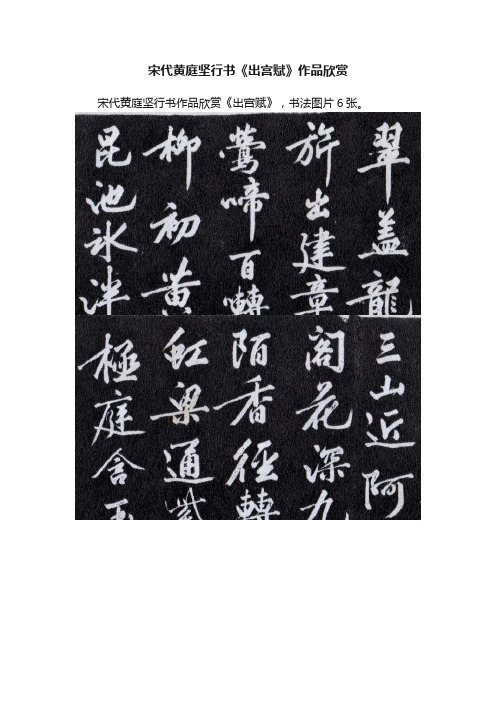 宋代黄庭坚行书《出宫赋》作品欣赏
宋代黄庭坚行书作品欣赏《出宫赋》，书法图片6张。
翠盖龍
旂出建章
鶯啼百囀
柳初黄
昆池冰泮
三山近阿
閣花深九
陌香徑轉
虹梁通紫
極庭含玉